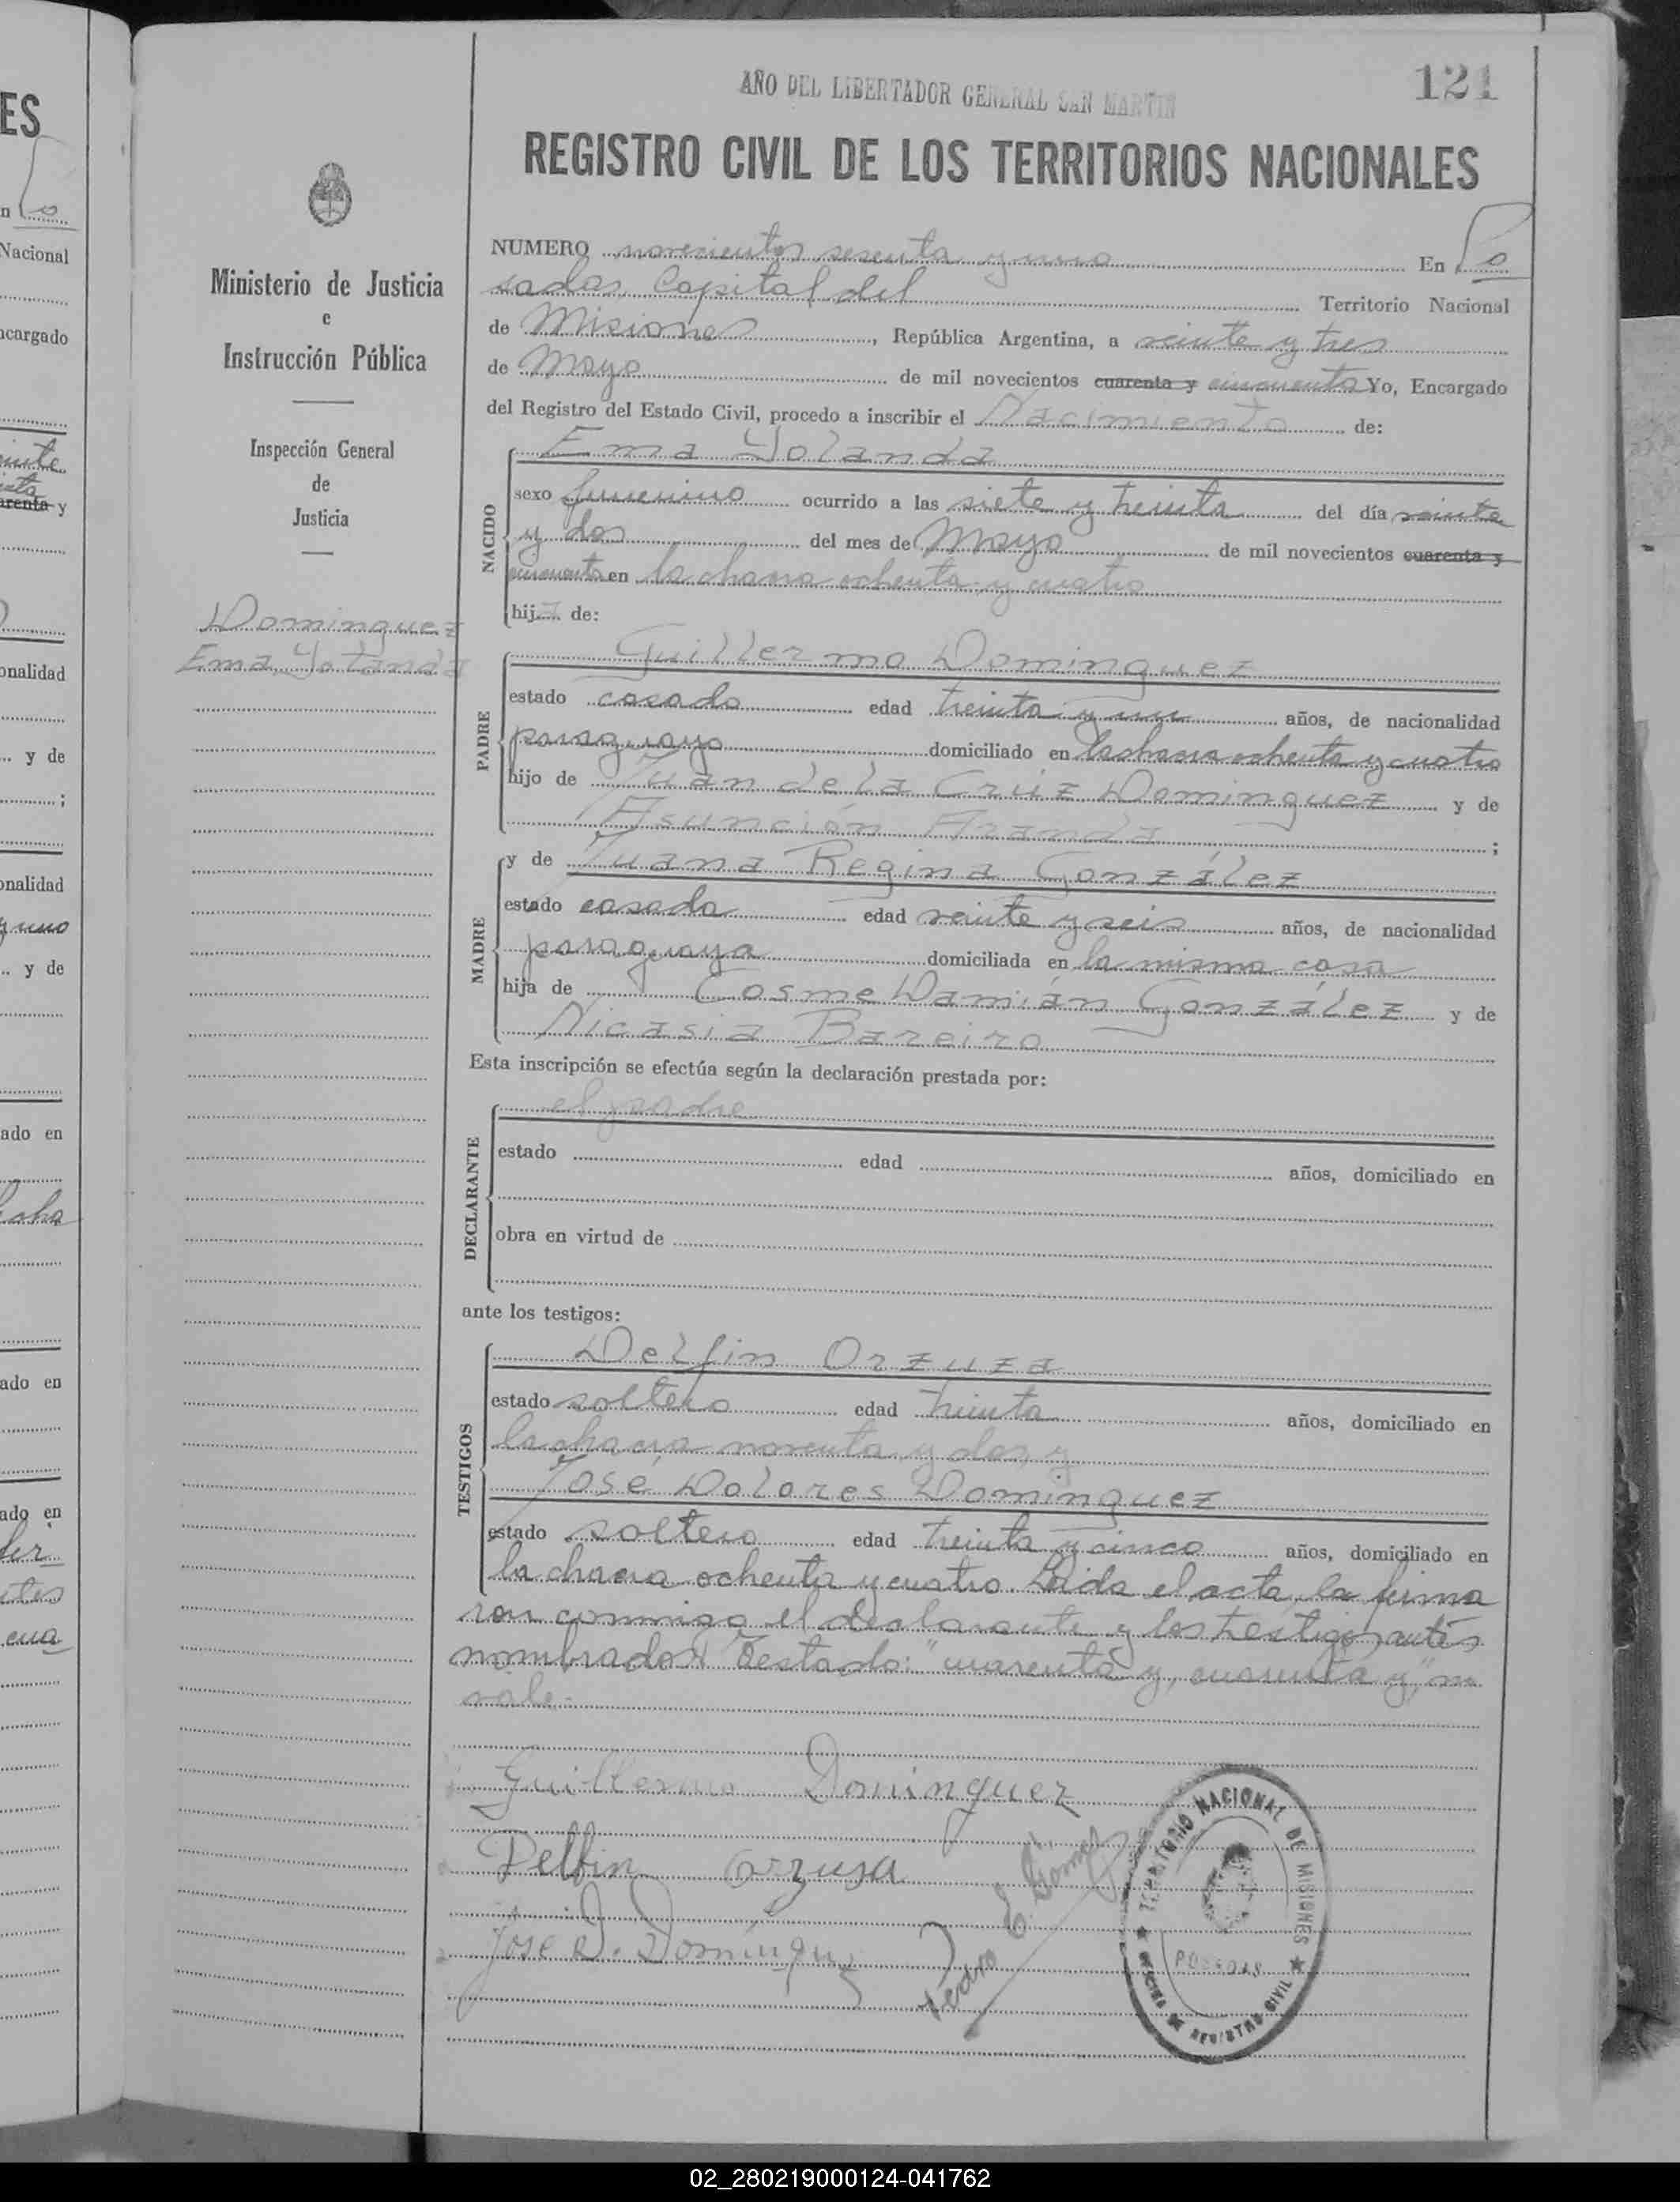 AÑO DEL LIBERTADOR GENERAL SAN MARTIN
121
REGISTRO CIVIL DE LOS TERRITORIOS NACIONALES
Ministerio de Justicia
e
Instrucción Pública
Inspección General
de
Justicia
Dominguez
Ema Yolanda
NUMERO novecientos sesenta y uno En Po
sadas, Capital del Territorio Nacional
de Misiones, República Argentina, a veinte y tres
de Mayo de mil novecientos cuarenta y cincuenta Yo, Encargado
del Registro del Estado Civil, procedo a inscribir el Nacimiento de:
NACIDO
Ema Yolanda
sexo femenino ocurrido a las siete y treinta del día veinte
y dos del mes de Mayo de mil novecientos cuarenta y
cincuenta en la chacra ochenta y cuatro
hija de:
PADRE
Guillermo Dominguez
estado casado edad treinta y un años, de nacionalidad
paraguayo domiciliado en la chacra ochenta y cuatro
hijo de Juan de la Cruz Dominguez y de
Asunción Aranda;
MADRE
y de Juana Regina González
estado casada edad veinte y seis años, de nacionalidad
paraguaya domiciliada en la misma casa
hija de Cosme Damián González y de
Nicasia Bareiro
Esta inscripción se efectúa según la declaración prestada por:
DECLARANTE
el padre
estado edad años, domiciliado en
obra en virtud de
ante los testigos:
TESTIGOS
Delfin Orzuza
estado soltero edad treinta años, domiciliado en
la chacra noventa y dos, y
José Dolores Dominguez
estado soltero edad treinta y cinco años, domiciliado en
la chacra ochenta y cuatro. Leida el acta, la firma
ron conmigo el declarante y los testigos antes
nombrados. Testado: "cuarenta y, cuarenta y," no
vale.-
Guillermo Dominguez
Delfin Orzusa
José D. Domínguez
Pedro E. Gómez
TERRITORIO NACIONAL DE MISIONES
POSADAS
OFICINA DE REGISTRO CIVIL
ES
n
Nacional
ncargado
arenta y
onalidad
y de
;
onalidad
y uno
y de
ado en
ado en
ado en
02_280219000124-041762